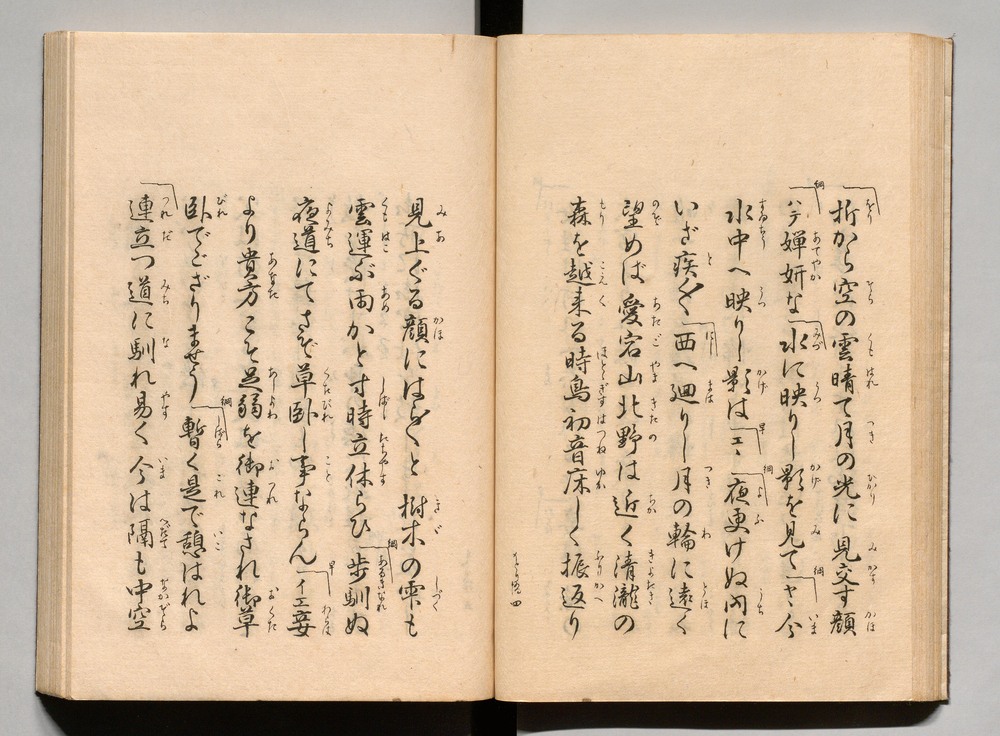 折から空の雲晴て月の光に見交す顔
綱
ハテ嬋妍な水に映りし影を見てヤヽ今
水中へ映りし影は エヽ 夜更けぬ内に
いざ疾く〳〵 西へ廻りし月の輪に遠く
望めば愛宕山北野は近く清瀧の
森を越来る時鳥初音床しく振返り
四
見上ぐる顔にはら〳〵と 樹木の雫も
雲運ぶ雨かと寸時立休らひ 歩馴ぬ
夜道にてさぞ草臥し事ならん イエ妾
より貴方こそ足弱を御連なされ御草
臥でござりませう 暫く是で憩はれよ
連立つ道に馴れ易く 今は隔も中空